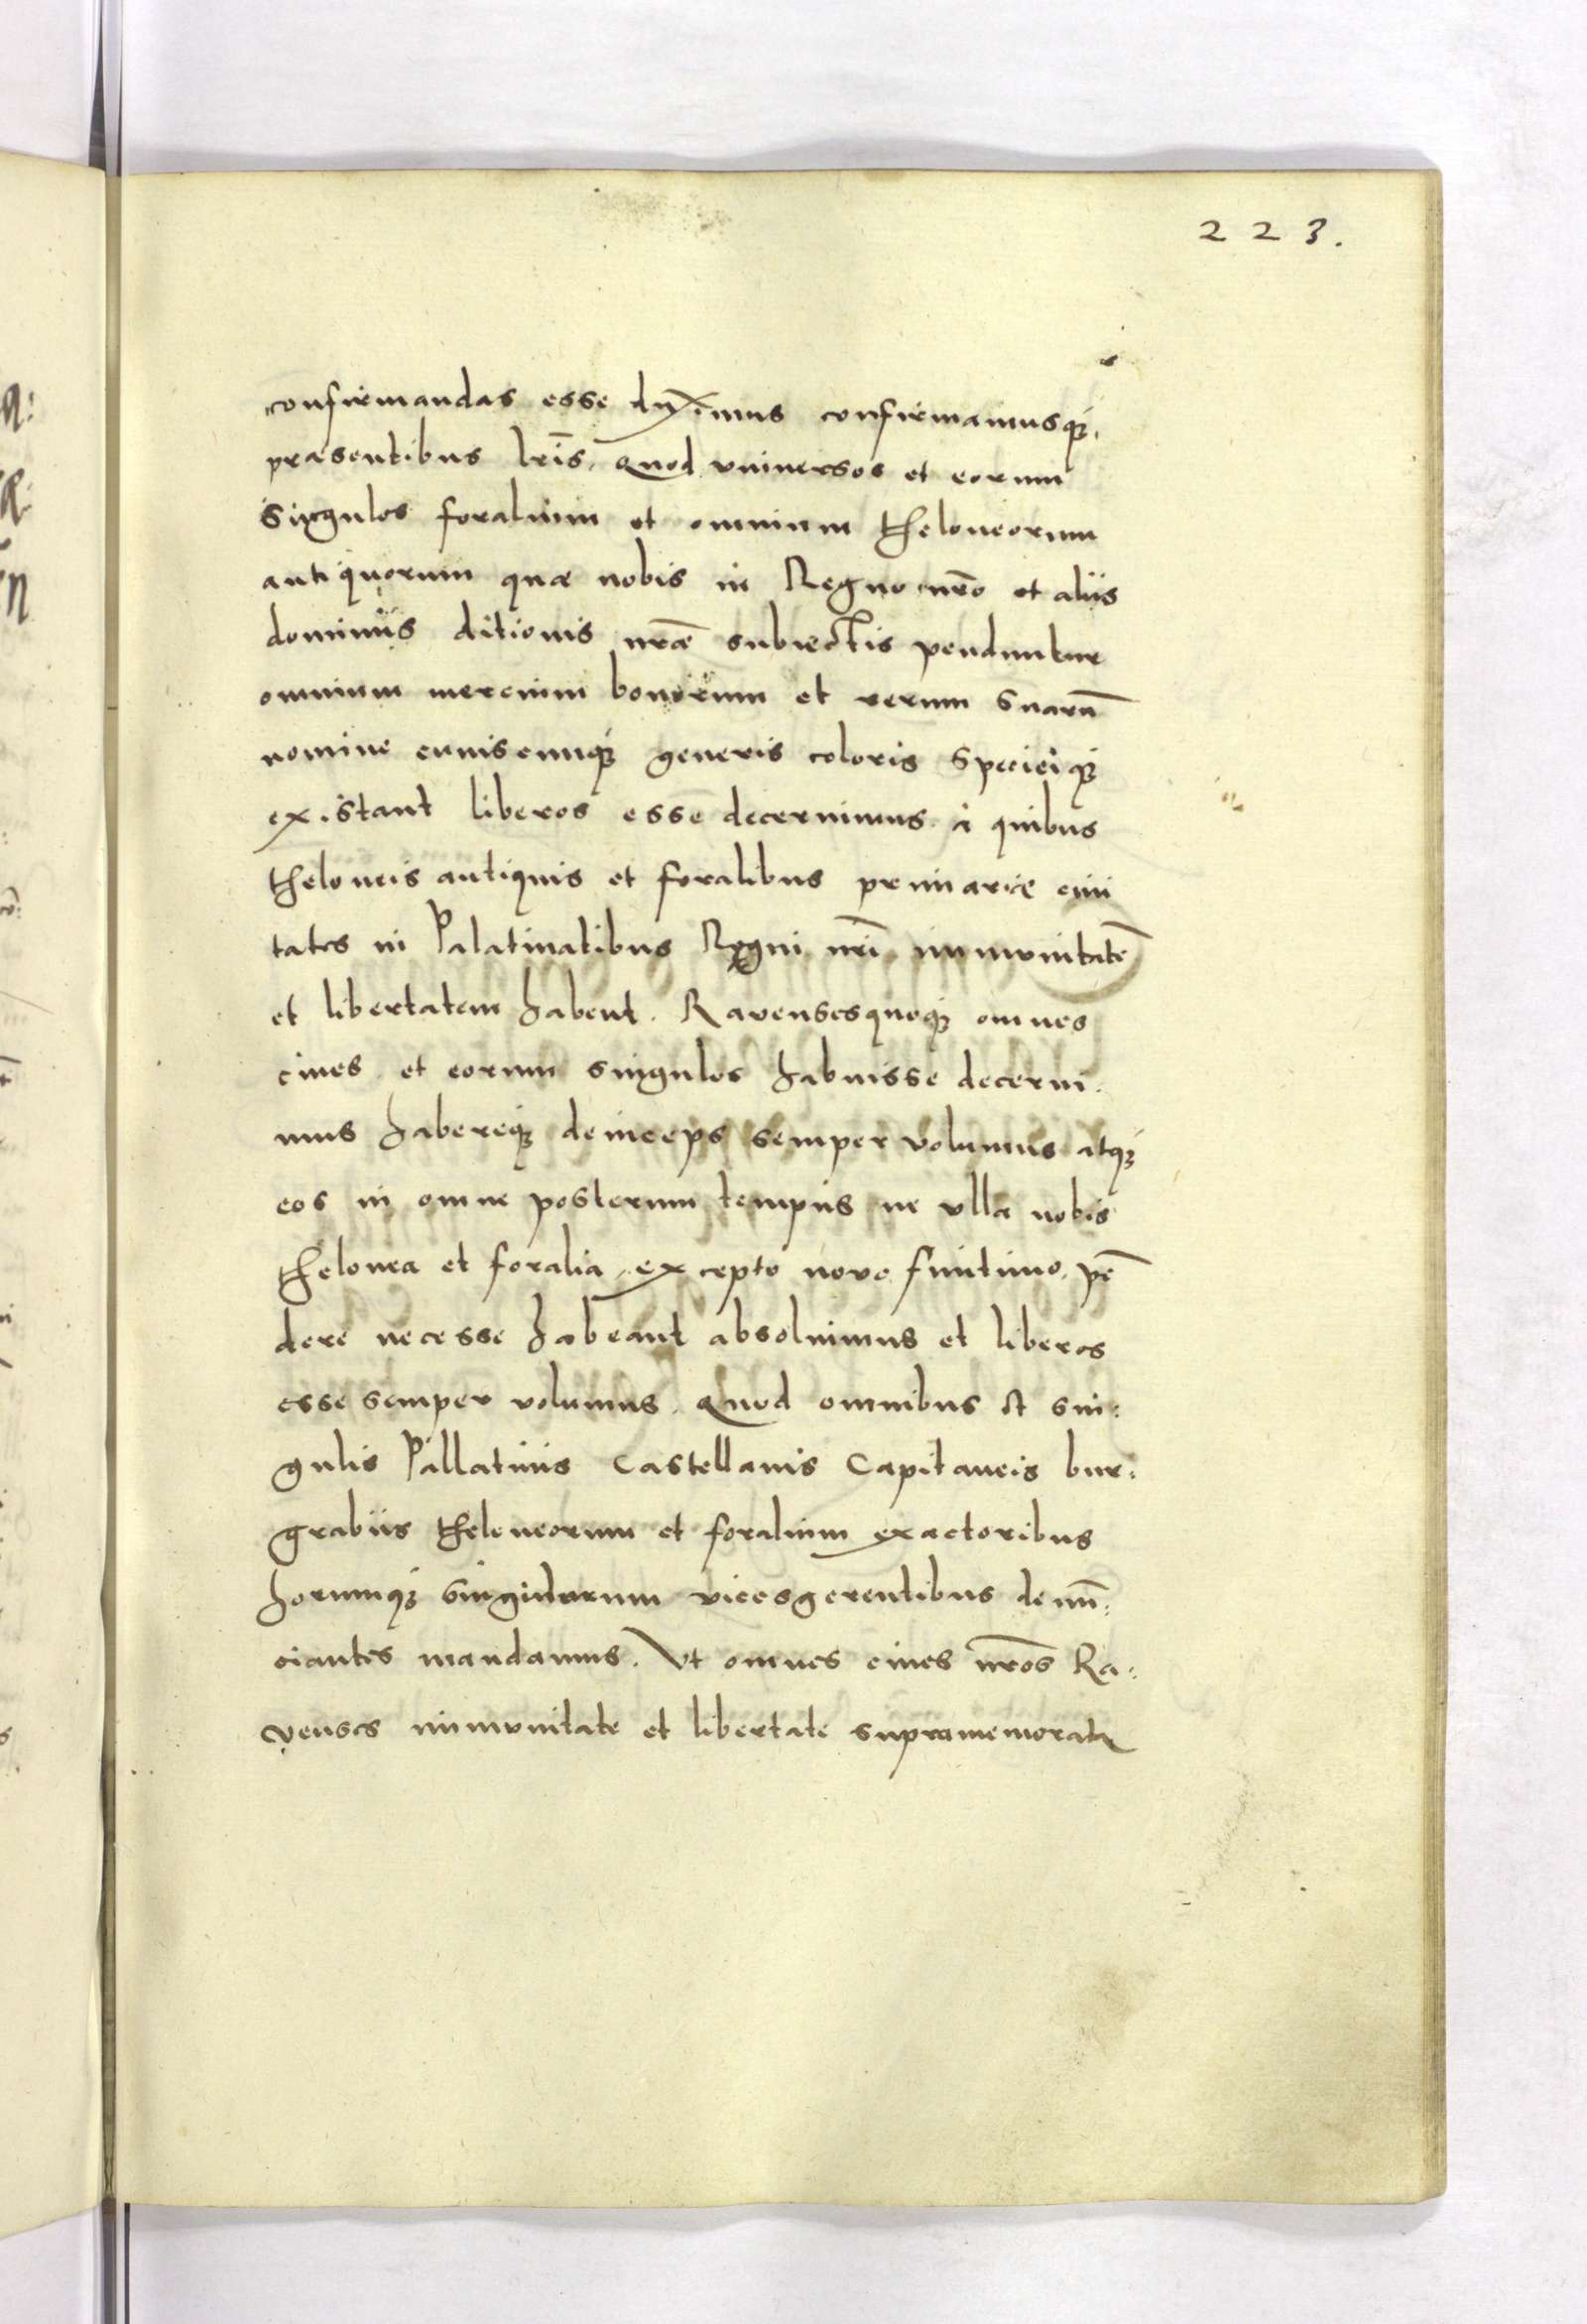 223.
confirmandas esse duximus confirmamusq3.
præsentibus lr̃is. Quod vniuersos et eorum
singulos foralium et omnium theloneorum
antiquorum quæ nobis in Regno nr̃o et aliis
dominiis ditionis nr̃æ subiectis penduntur
omnium mercium bonorum et rerum suarũ
nomine cuiuscumq3 generis coloris specieiq3
existant liberos esse decernimus. à quibus
theloneis antiquis et foralibus primariæ ciui
tates in Palatinatibus Regni nr̃i immunitatẽ
et libertatem habent. Rauensesquoq3 omnes
ciues et eorum singulos habuisse decerni.
mus habereq3 deinceps semper volumus atq3
eos in omne posterum tempus ne vlla nobis
thelonea et foralia, excepto nouo finitimo, pẽ
dere necesse habeant absoluimus et liberos
esse semper volumus. Quod omnibus et sin:
gulis Pallatinis Castellanis Capitaneis bur:
grabiis theloneorum et foralium exactoribus
horumq3 singulorum vicesgerentibus denũ:
ciantes mandamus. Vt omnes ciues nr̃os Ra:
venses immunitate et libertate supramemorata